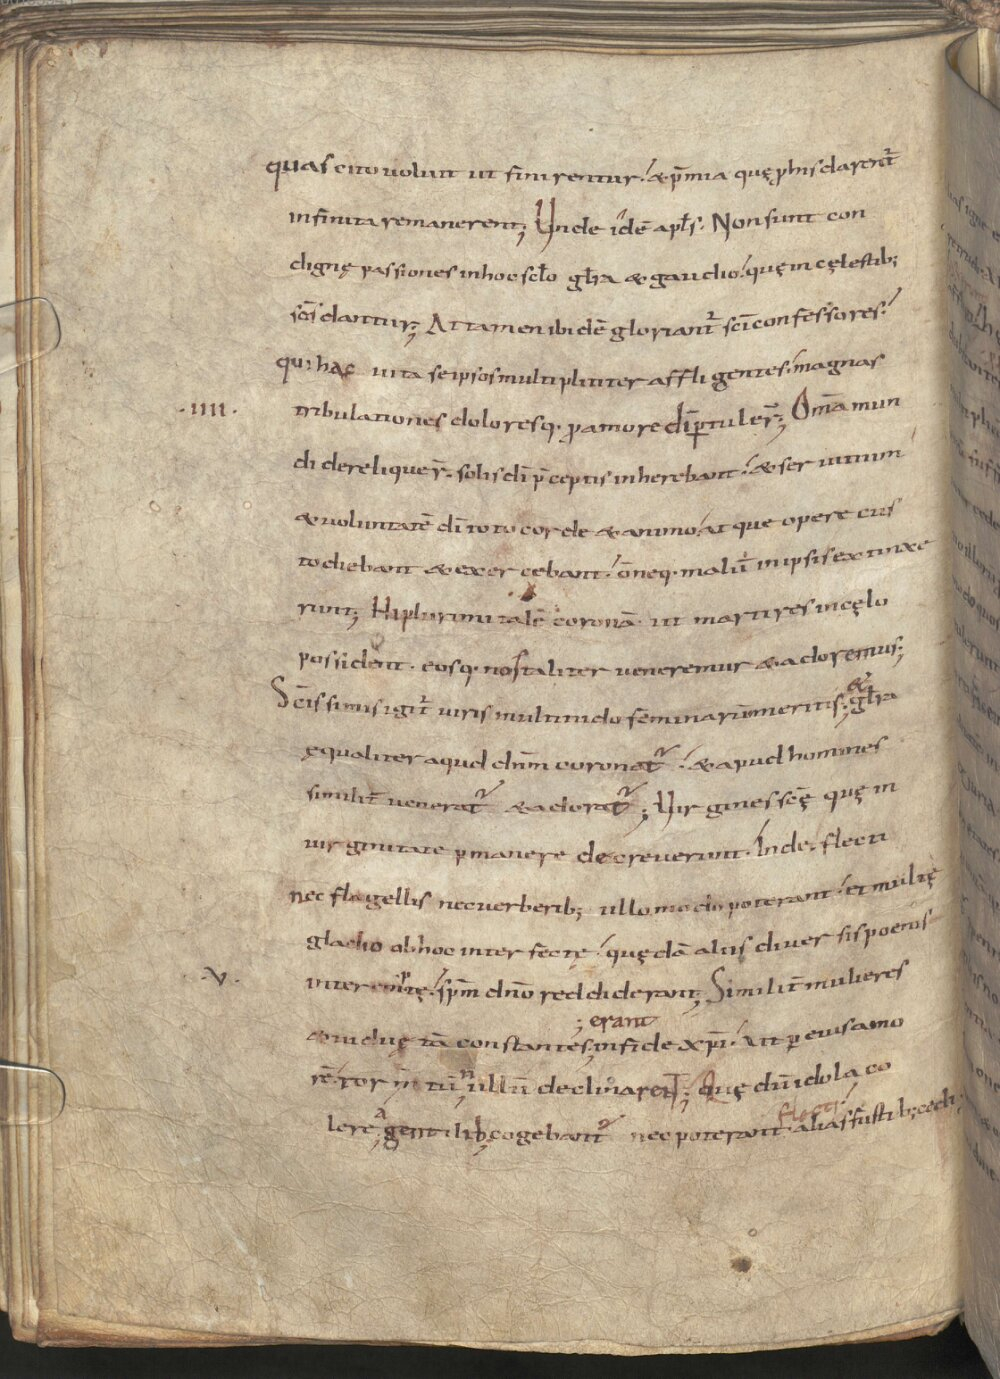 quas cito voluit ut finirentur. & p̄mia quę ꝓ his darent᷑
infinita remanerent; Unde idē apłs. Non sunt con
dignę passiones in hoc scło gła & gaudio quę in cęlestib;
scīs dantur; Attamen ibidē gloriant᷑ scī confessores.
qui hac vita se ipsos multipliciter affligentes. magnas
·IIII· tribulationes doloresq. ꝓ amore dī ꝑtuler̄; Omā mun
di dereliquer̄. solis dī p̄ceptis inherebant. & servitium
& voluntatē dī toto corde & animo atque opere cus
todiebant & exercebant. ōneq. malū in ipsis extinxe
runt; Hi plurimi talē coronā ut martires in cęlo
possident. eosq. nos taliter veneremur & adoremus;
Scīssimis igit᷑ viris multitudo feminarū meritis; & gła
ęqualiter aqud dn̄m coronat᷑. & apud homines
similit̄ venerat᷑ & adorat᷑; Virgines scę̄ quę in
virginitate ꝑmanere decreverunt. Inde flecti
nec flagellis nec verberib; ullo modo poterant. et multę
gladio ab hoc interfectę. quędā aliis diversis poenis
·V· interemptę. spm̄ dn̄o reddiderant; Similit̄ mulieres
; erant
& viduę tā constantes; in fide xp̄i. Ut ꝑ eius amo
rē tor m̄ tū n ullū declinarent; Quę dū idola co
flecti
lere, a gentilib; cogebant᷑ nec poterant. alias fustib; cedi;